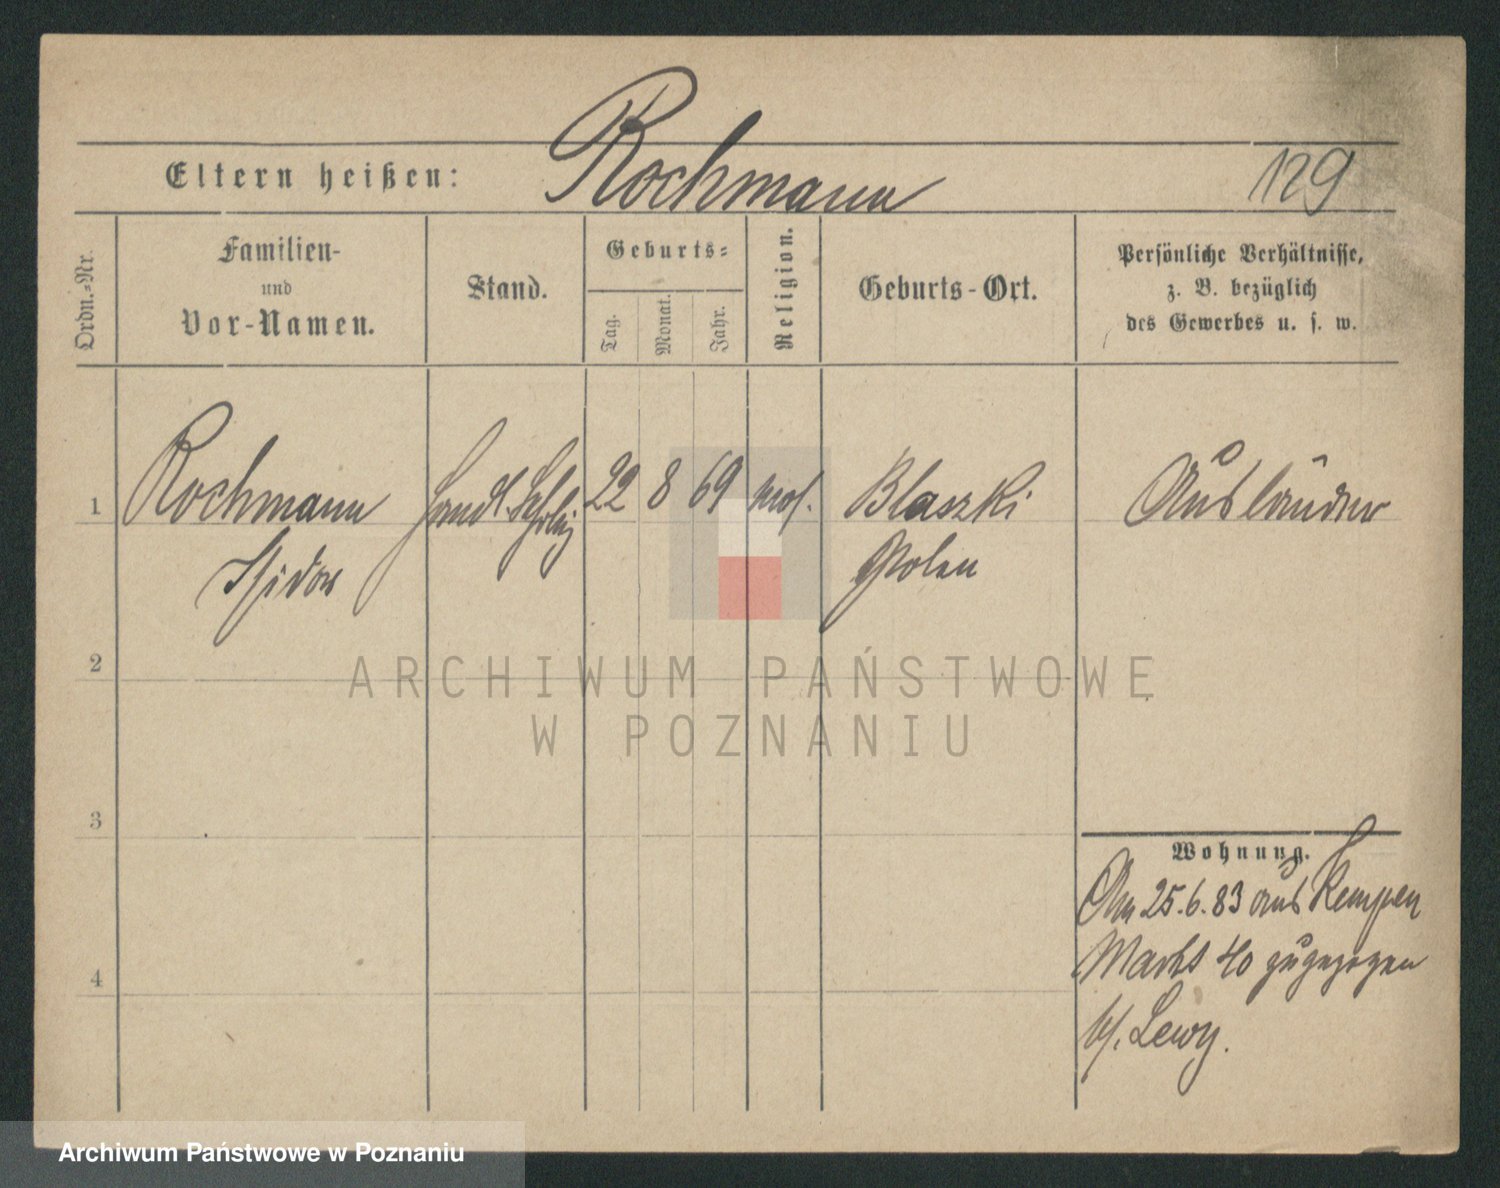 Rochmann
Eltern heißen:
129
Ordn.-Nr.
Familien-
und
Vor-Namen.
Stand.
Geburts-
Tag.
Monat.
Jahr.
Religion.
Geburts-Ort.
Persönliche Verhältnisse,
z. B. bezüglich
des Gewerbes u. s. w.
1
Rochmann
Isidor
Handl.
22
8
69
mos.
Blaszki
Polen
Ausländer
2
ARCHIWUM PAŃSTWOWE
W POZNANIU
3
Wohnung.
Am 25.6.83 aus Kempen
Markt 40 zugezogen
4
b/. Lewy.
Archiwum Państwowe w Poznaniu